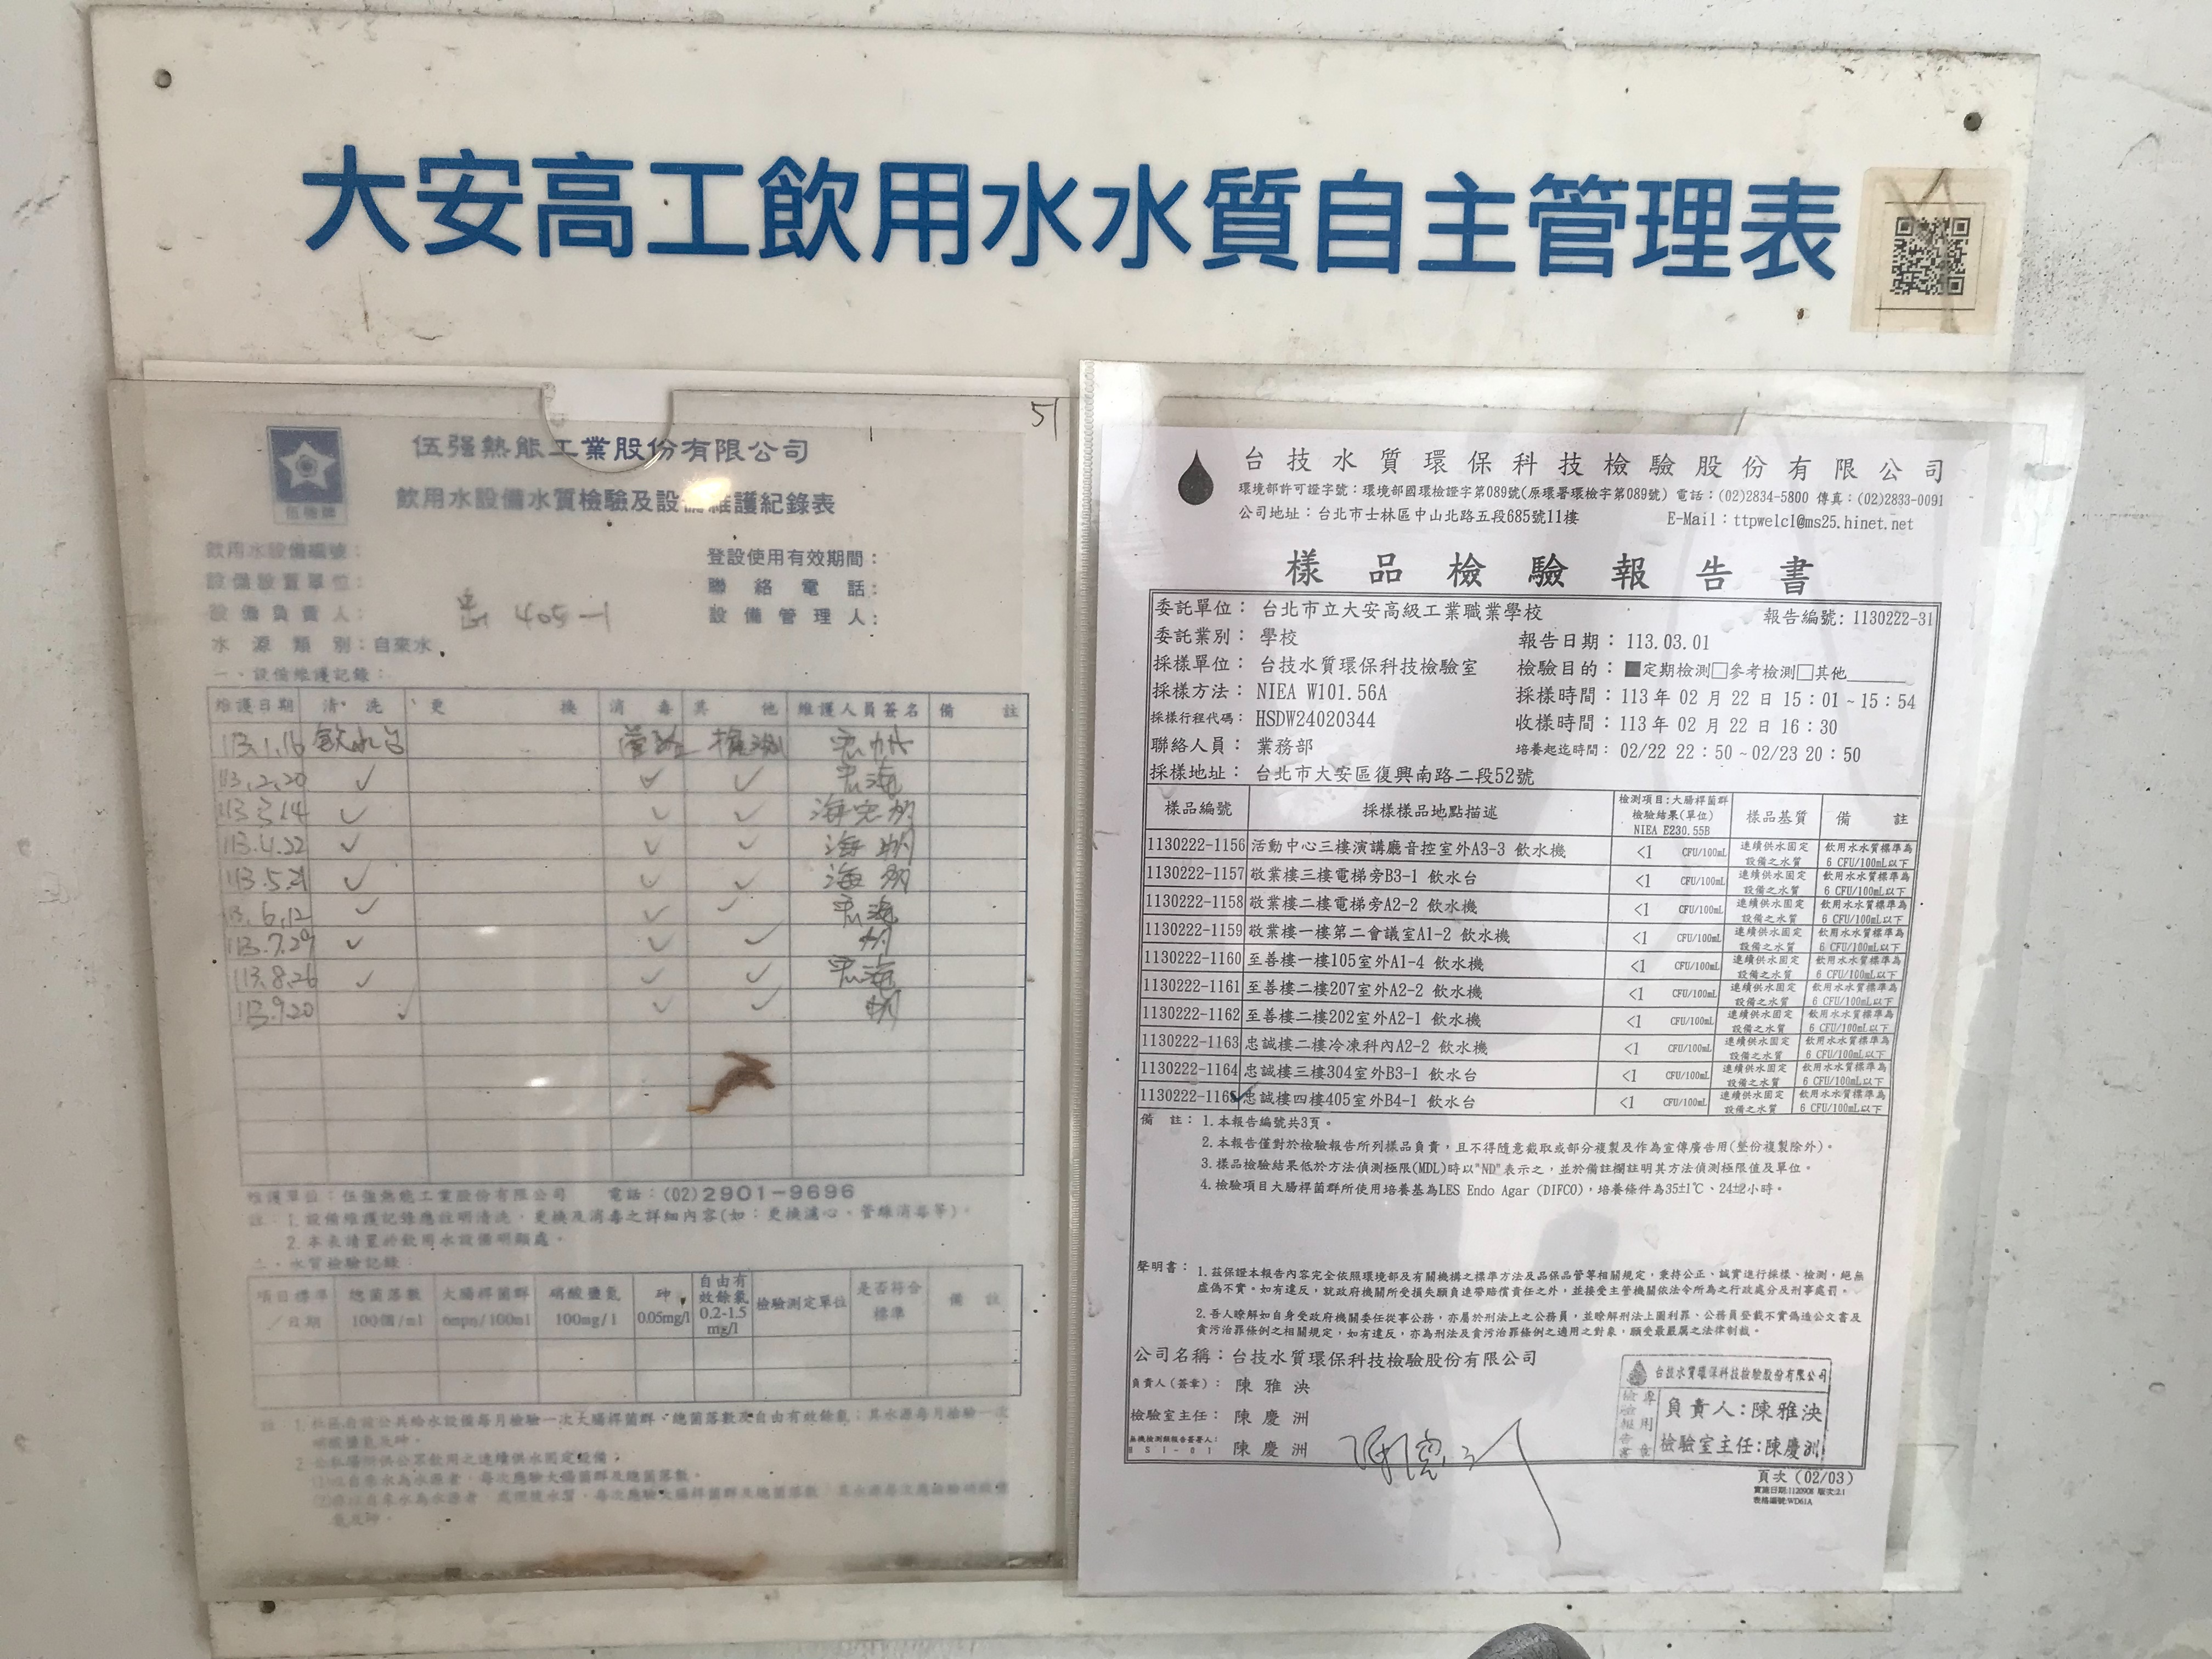 大安高工飲用水水質自主管理表
51
伍強熱能工業股份有限公司
飲用水設備水質檢驗及設備維護紀錄表
伍強牌
飲用水設備編號：
登設使用有效期間：
設備設置單位：
聯絡電話：
設備負責人：
設備管理人：
405-1
水源類別：自來水
一、設備維護記錄：
維護日期 清洗 更換 消毒 其他 維護人員簽名 備註
113.1.16 飲水台 管路 檢測
113.2.20 ✓ ✓ ✓
113.3.14 ✓ ✓ ✓
113.4.22 ✓ ✓ ✓
113.5.21 ✓ ✓ ✓
113.6.12 ✓ ✓ ✓
113.7.29 ✓ ✓ ✓
113.8.26 ✓ ✓ ✓
113.9.20 ✓ ✓ ✓
維護單位：伍強熱能工業股份有限公司 電話：(02)2901-9696
註：1.設備維護記錄應註明清洗、更換及消毒之詳細內容(如：更換濾心、管線消毒等)。
2.本表請置於飲用水設備明顯處。
二、水質檢驗記錄：
項目標準／日期 總菌落數 100個/ml 大腸桿菌群 6mpn/100ml 硝酸鹽氮 100mg/l 砷 0.05mg/l 自由有效餘氯 0.2-1.5 mg/l 檢驗測定單位 是否符合標準 備註
台技水質環保科技檢驗股份有限公司
環境部許可證字號：環境部國環檢證字第089號(原環署環檢字第089號) 電話：(02)2834-5800 傳真：(02)2833-0091
公司地址：台北市士林區中山北路五段685號11樓 E-Mail：ttpwelcl@ms25.hinet.net
樣品檢驗報告書
委託單位：台北市立大安高級工業職業學校 報告編號：1130222-31
委託業別：學校 報告日期：113.03.01
採樣單位：台技水質環保科技檢驗室 檢驗目的：■定期檢測□參考檢測□其他
採樣方法：NIEA W101.56A 採樣時間：113年02月22日15：01~15：54
採樣行程代碼：HSDW24020344 收樣時間：113年02月22日16：30
聯絡人員：業務部 培養起迄時間：02/22 22：50~02/23 20：50
採樣地址：台北市大安區復興南路二段52號
樣品編號 採樣樣品地點描述 檢測項目：大腸桿菌群 檢驗結果(單位) NIEA E230.55B 樣品基質 備註
1130222-1156 活動中心三樓演講廳音控室外A3-3 飲水機 <1 CFU/100mL 連續供水固定設備之水質 飲用水水質標準為6 CFU/100mL以下
1130222-1157 敬業樓三樓電梯旁B3-1 飲水台 <1 CFU/100mL 連續供水固定設備之水質 飲用水水質標準為6 CFU/100mL以下
1130222-1158 敬業樓二樓電梯旁A2-2 飲水機 <1 CFU/100mL 連續供水固定設備之水質 飲用水水質標準為6 CFU/100mL以下
1130222-1159 敬業樓一樓第二會議室A1-2 飲水機 <1 CFU/100mL 連續供水固定設備之水質 飲用水水質標準為6 CFU/100mL以下
1130222-1160 至善樓一樓105室外A1-4 飲水機 <1 CFU/100mL 連續供水固定設備之水質 飲用水水質標準為6 CFU/100mL以下
1130222-1161 至善樓二樓207室外A2-2 飲水機 <1 CFU/100mL 連續供水固定設備之水質 飲用水水質標準為6 CFU/100mL以下
1130222-1162 至善樓二樓202室外A2-1 飲水機 <1 CFU/100mL 連續供水固定設備之水質 飲用水水質標準為6 CFU/100mL以下
1130222-1163 忠誠樓二樓冷凍科內A2-2 飲水機 <1 CFU/100mL 連續供水固定設備之水質 飲用水水質標準為6 CFU/100mL以下
1130222-1164 忠誠樓三樓304室外B3-1 飲水台 <1 CFU/100mL 連續供水固定設備之水質 飲用水水質標準為6 CFU/100mL以下
1130222-1165 忠誠樓四樓405室外B4-1 飲水台 <1 CFU/100mL 連續供水固定設備之水質 飲用水水質標準為6 CFU/100mL以下
備註：1.本報告編號共3頁。
2.本報告僅對於檢驗報告所列樣品負責，且不得隨意截取或部分複製及作為宣傳廣告用(整份複製除外)。
3.樣品檢驗結果低於方法偵測極限(MDL)時以"ND"表示之，並於備註欄註明其方法偵測極限值及單位。
4.檢驗項目大腸桿菌群所使用培養基為LES Endo Agar (DIFCO)，培養條件為35±1℃、24±2小時。
聲明書：1.茲保證本報告內容完全依照環境部及有關機構之標準方法及品保品管等相關規定，秉持公正、誠實進行採樣、檢測，絕無
虛偽不實。如有違反，就政府機關所受損失願負連帶賠償責任之外，並接受主管機關依法令所為之行政處分及刑事處罰。
2.吾人瞭解如自身受政府機關委任從事公務，亦屬於刑法上之公務員，並瞭解刑法上圖利罪、公務員登載不實偽造公文書及
貪污治罪條例之相關規定，如有違反，亦為刑法及貪污治罪條例之適用之對象，願受最嚴厲之法律制裁。
公司名稱：台技水質環保科技檢驗股份有限公司
負責人(簽章)：陳雅泱
檢驗室主任：陳慶洲
無機檢測類報告簽署人：HSI-01 陳慶洲
台技水質環保科技檢驗股份有限公司
檢驗報告書專用章
負責人：陳雅泱
檢驗室主任：陳慶洲
頁次(02/03)
實施日期:1120908 版次:2.1
表格編號:WD61A